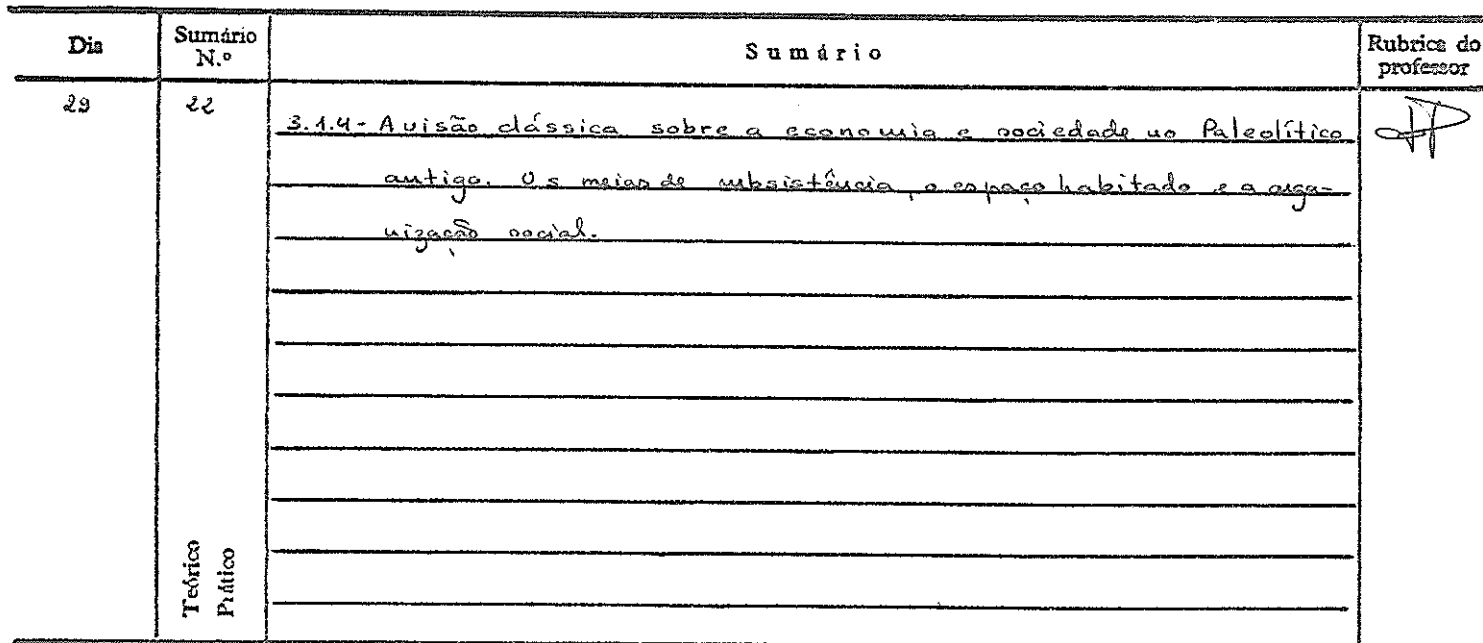 Dia
Sumário N.º
Sumário
Rubrica do professor
29
22
3.1.4 - A visão clássica sobre a economia e sociedade no Paleolítico
antigo. Os meios de subsistência, o espaço habitado e a orga-
nização social.
Teórico
Prático